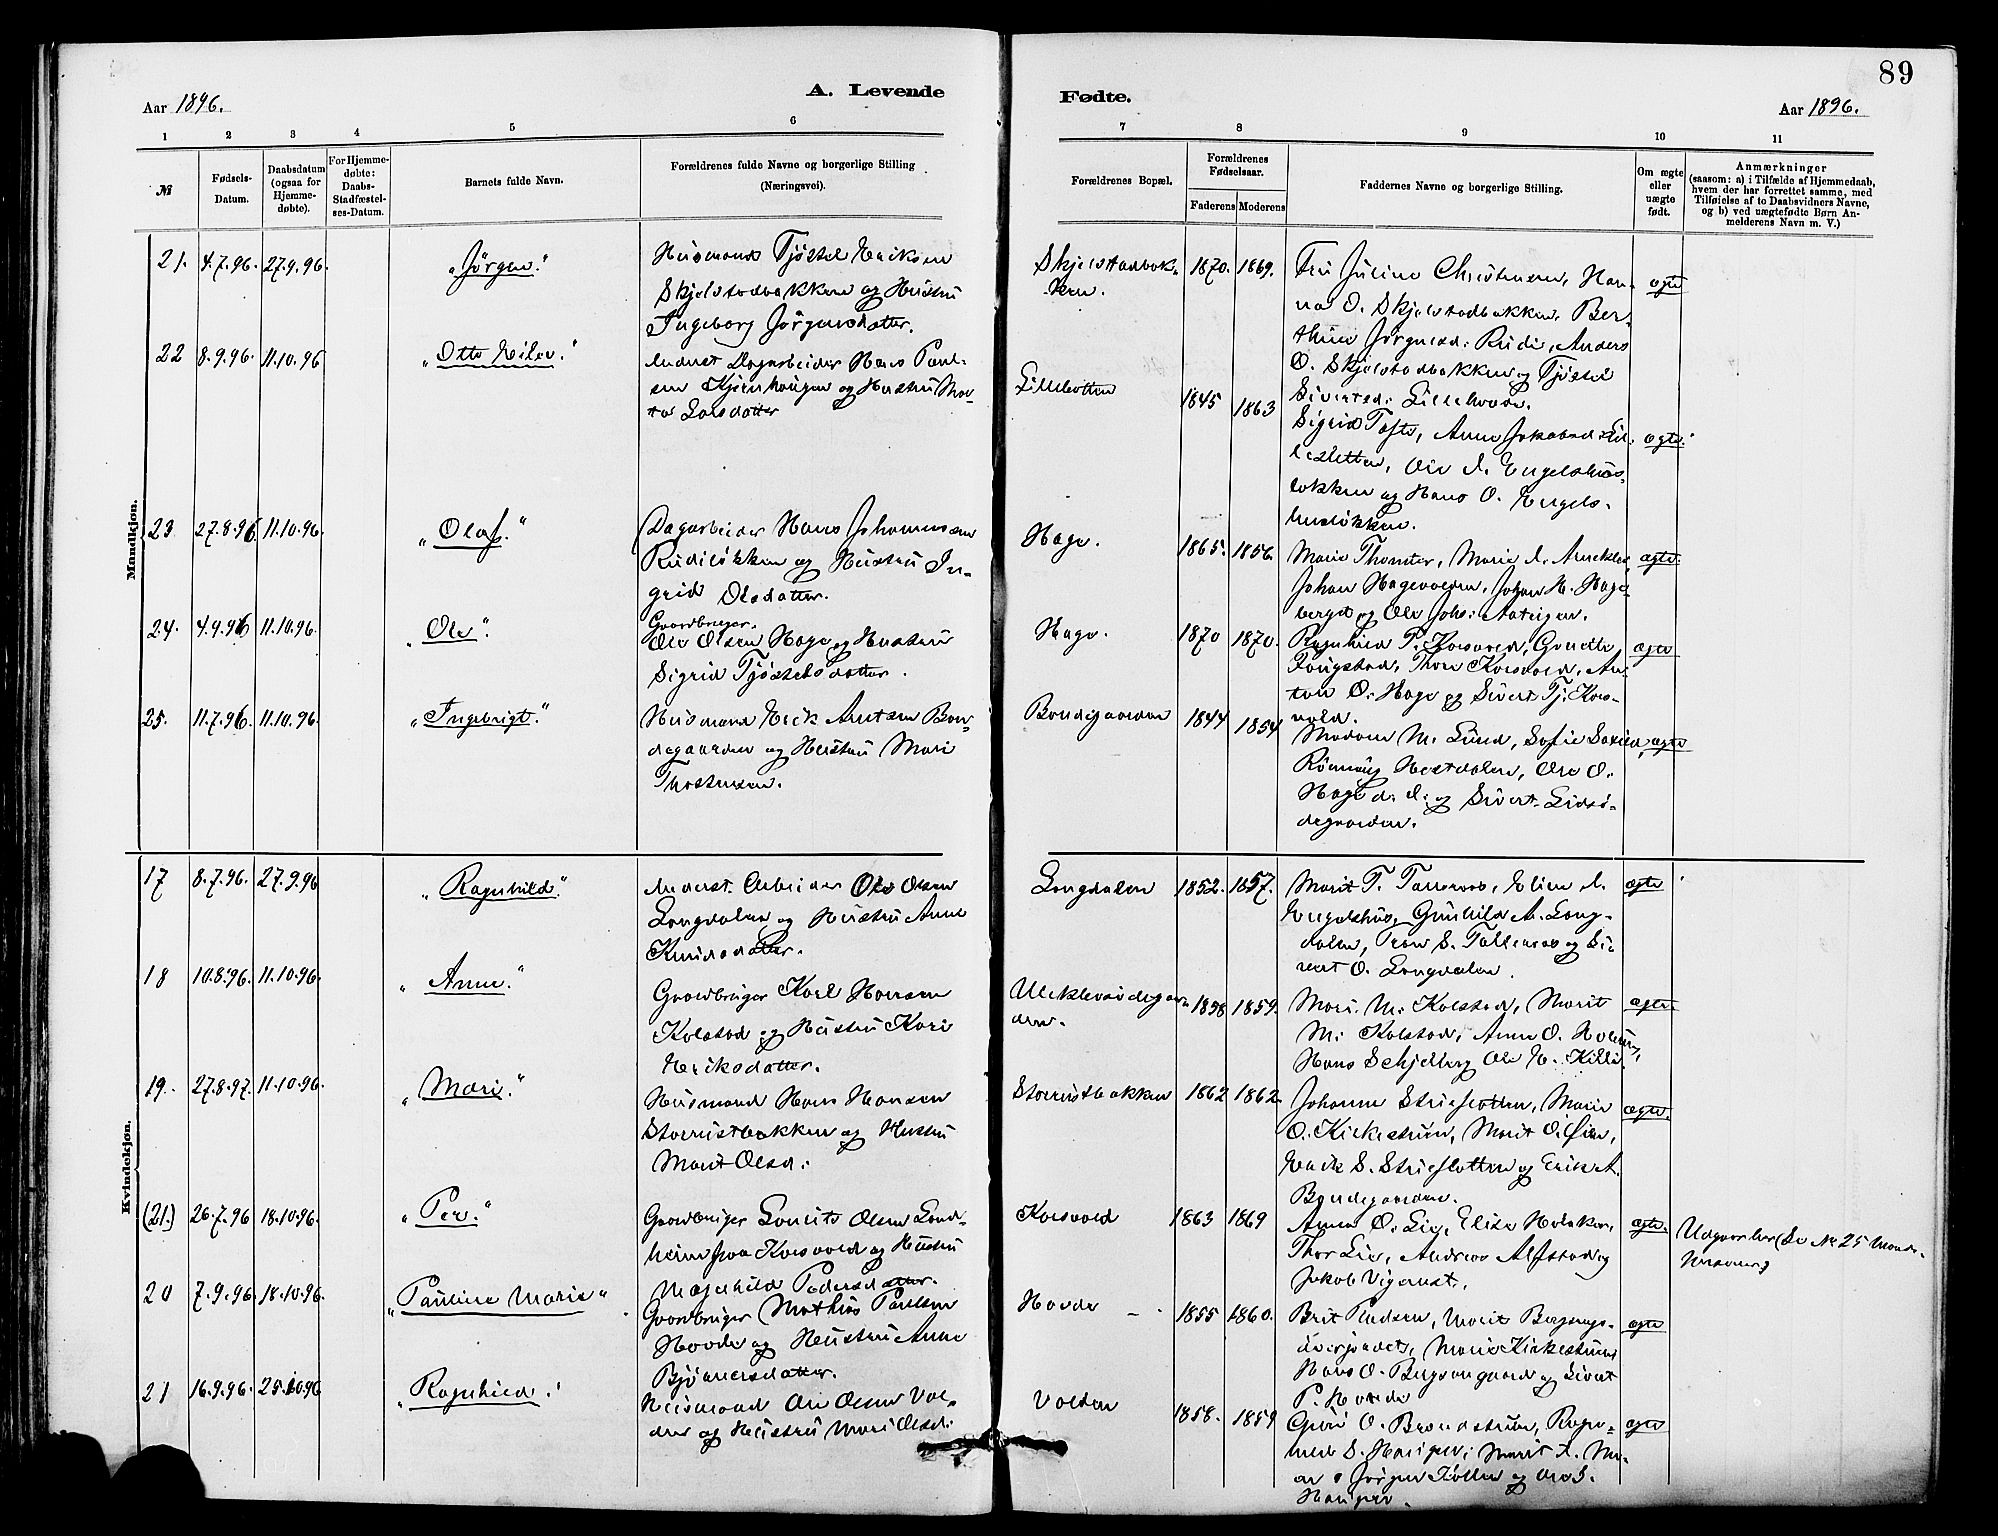 89
Aar 1896.
A. Levende
Fødte.
Aar 1896.
1 2 3 4 5 6
7 8 9 10 11
№
Fødsels-
Datum.
Daabsdatum
(ogsaa for
Hjemme-
døbte).
For Hjemme-
døbte:
Daabs-
Stadfæstel-
ses-Datum.
Barnets fulde Navn.
Forældrenes fulde Navne og borgerlige Stilling
(Næringsvei).
Forældrenes Bopæl.
Forældrenes
Fødselsaar.
Faderens Moderens
Faddernes Navne og borgerlige Stilling.
Om ægte
eller
uægte
født.
Anmærkninger
(saasom: a) i Tilfælde af Hjemmedaab,
hvem der har forrettet samme, med
Tilføielse af to Daabsvidners Navne,
og b) ved uægtefødte Børn An-
melderens Navn m. V.)
Mandkjøn.
21. 4.7.96. 27.9.96. "Jörgen."
Husmand Tjöstel Eriksen
Skjelstadbakken og Hustru
Ingeborg Jörgensdatter.
Skjelstadbak-
ken.
1870. 1869.
Fru Juline Christensen, Han-
na O. Skjelstadbakken, Ber-
thine Jörgensd: Rudi, Anders
O. Skjelstadbakken og Tjöstel
Sivertsd: Lillehovde.
ægte
22 8.9.96. 11.10.96 "Otto Eilev."
Inderst Dagarbeider Hans Paul-
sen Kjörnhaugen og Hustru Mar-
ta Larsdatter
Lillebotten
1845 1863
Sigrid Tofte, Anne Jakobsd: Lil-
lesletten, Ole I. Engelshus-
løkken og Hans O. Engels-
husløkken.
ægte.
23 27.8.96. 11.10.96. "Olaf."
Dagarbeider Hans Johannesen
Rudiløkken og Hustru In-
grid Olsdatter.
Hage.
1865. 1856.
Marie Thomter, Marie I.
Johan Hagevolden, Johan H. Hage-
berget og Ole Joh:
ægte.
24. 4.9.96 11.10.96. "Ole".
Gaardbruger.
Ole Olsen Hage og Hustru
Sigrid Tjöstelsdatter.
Hage.
1870 1870.
Ragnhild P. Korsvold, Gunilde
Faugstad, Thore Korsvold, An-
ton O. Hage og Sivert Tj. Kors-
vold.
ægte
25. 11.7.96 11.10.96. "Ingebrigt."
Husmand Erik Antsen Bon-
degaarden og Hustru Mari
Thostensen.
Bondegaarden
1844 1854
Madam M. Lund, Sofie
Rönnaug Hestdalen, Ole O.
Hage d. I. og Sivert Lids-
degaarden.
ægte
Kvindekjøn.
17 8.7.96. 27.9.96 "Ragnhild."
Inderst Arbeider Ole Olsen
Langdalen og Hustru Anne
Knudsdatter.
Langdalen
1852. 1857.
Marit T. Talleraas, Eline I.
Engelshus, Gunhild A. Lang-
dalen, Iver S. Talleraas og Si-
vert O. Langdalen.
ægte
18 10.8.96. 11.10.96. "Anne."
Gaardbruger Karl Hansen
Kolstad og Hustru Kari
Eriksdatter.
1858 1859.
Mari M. Kolstad, Marit
M. Kolstad, Anne O.
Hans Schjelberg Ole E. Killi.
ægte.
19. 27.8.97. 11.10.96. "Mari."
Husmand Hans Hansen
Storrustbakken og Hustru
Marit Olsd:
Storrustbakken
1862 1862.
Johanne Strieflotten, Marie
O. Kirkestuen, Marit O. Øien,
Erik S. Strieflotten og Erik A.
Bondegaarden.
ægte.
(21.) 26.7.96 18.10.96. "Per."
Gaardbruger Laurits Olsen Land-
heim paa Korsvold og Hustru
Magnhild Pedersdatter.
Korsvold
1863 1869
Anna O. Lie, Elise Holaker,
Thor Lie, Andreas Alfstad og
Jakob Vigerust.
ægte.
Udgaar her (Se № 25 Mand-
20 7.9.96. 18.10.96. "Pauline Marie"
Gaardbruger Mathias Paulsen
Hovde og Hustru Anne
Bjönnersdatter.
Hovde
1855 1860.
Brit Paulsen, Marit Bergsengs-
Marie Kirkestuen
Hans O. Bergsengaard og Sivert
P. Hovde
ægte
21 16.9.96. 25.10.96 "Ragnhild."
Husmand Ole Olsen Vol-
den og Hustru Mari Olsd:
Volden
1858. 1859
Guri O. Brandstuen, Ragn-
hild S. Harildstad, Marit I.
Jörgen Tollen og Ole I.
ægte